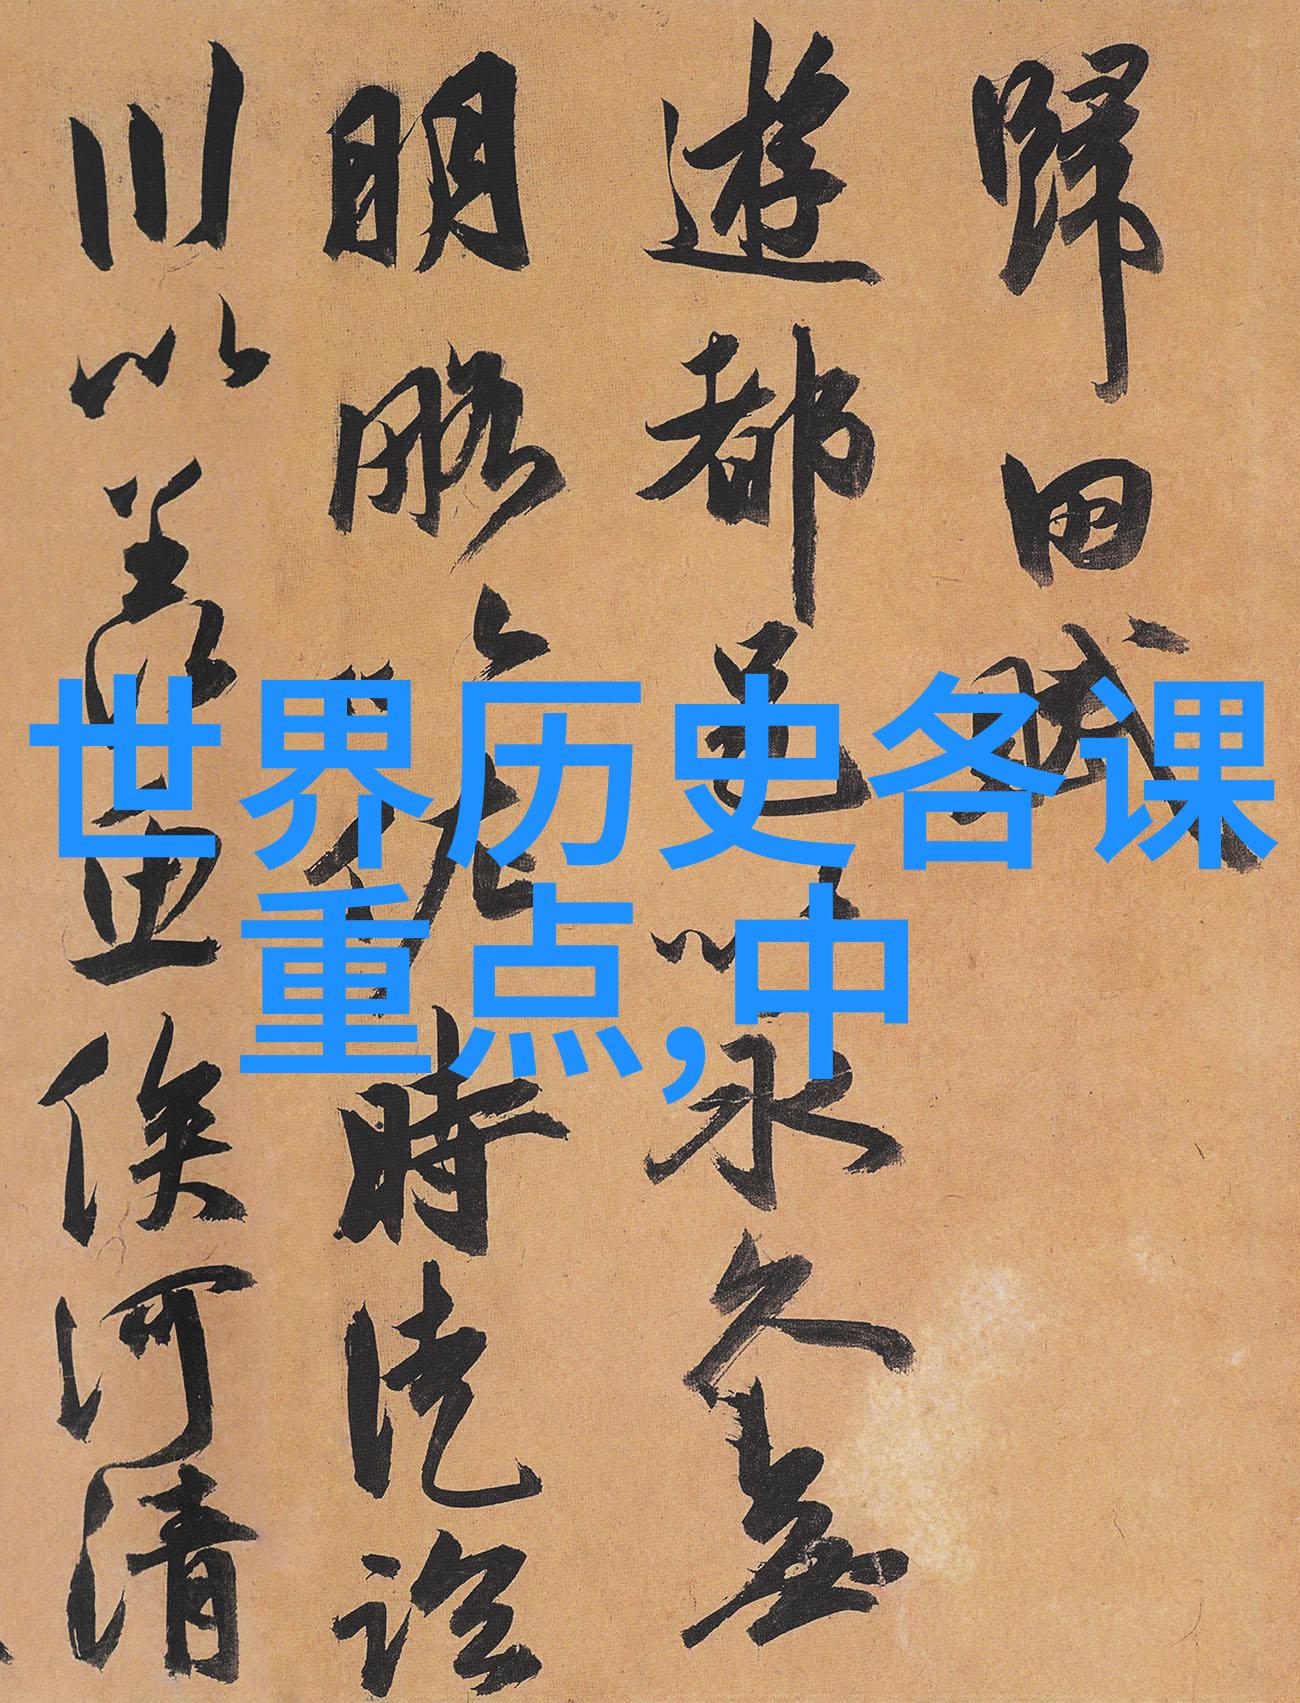 歸田賦
遊都邑以永久無
明略以佐時徒臨
川以羡魚俟河清
世界历史各课
重点,中